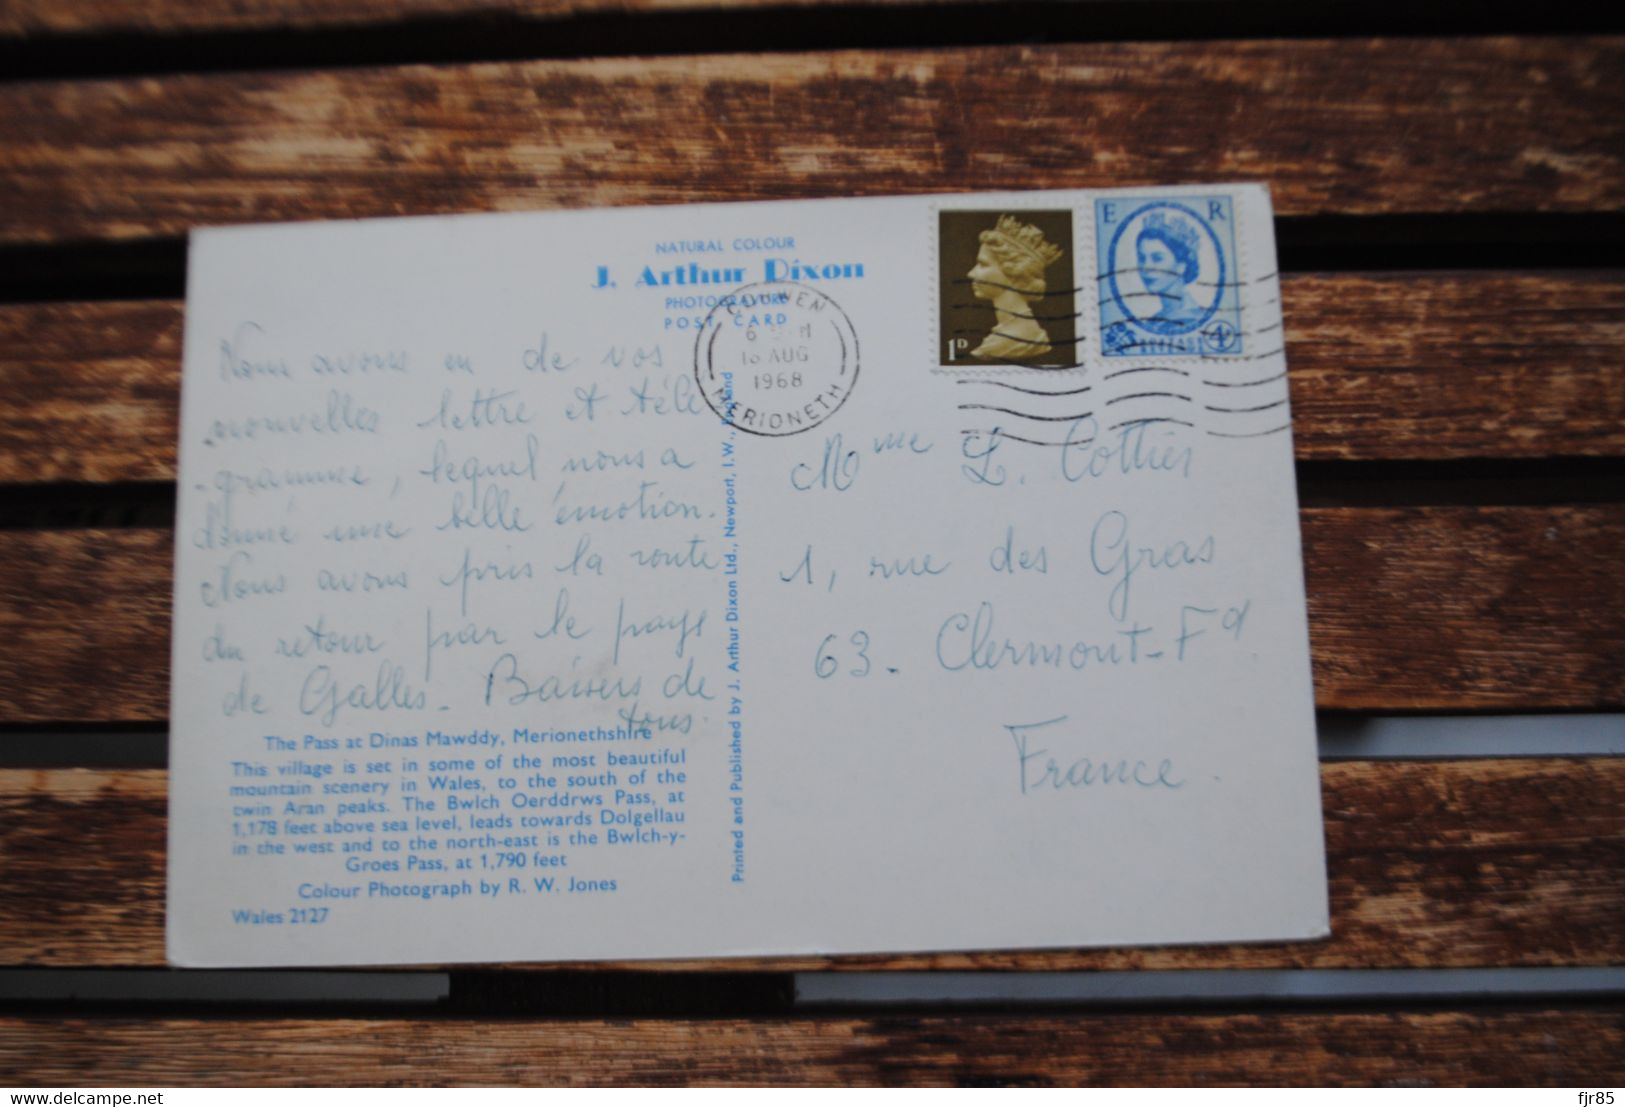 NATURAL COLOUR
J. Arthur Dixon
PHOTOGRAVURE
POST CARD
1D
E R
POSTAGE
4D
6
16 AUG
1968
MERIONETH
Nous avons eu de vos
nouvelles lettre et télé
-gramme, lequel nous a
donné une belle émotion.
Nous avons pris la route
du retour par le pays
de Galles. Baisers de
tous.
The Pass at Dinas Mawddy, Merionethshire
This village is set in some of the most beautiful
mountain scenery in Wales, to the south of the
twin Aran peaks. The Bwlch Oerddrws Pass, at
1,178 feet above sea level, leads towards Dolgellau
in the west and to the north-east is the Bwlch-y-
Groes Pass, at 1,790 feet
Colour Photograph by R. W. Jones
Wales 2127
Printed and Published by J. Arthur Dixon Ltd., Newport, I.W., England
Mme L. Cottier
1, rue des Gras
63 - Clermont-Fd
France.
delcampe.net
fjr85